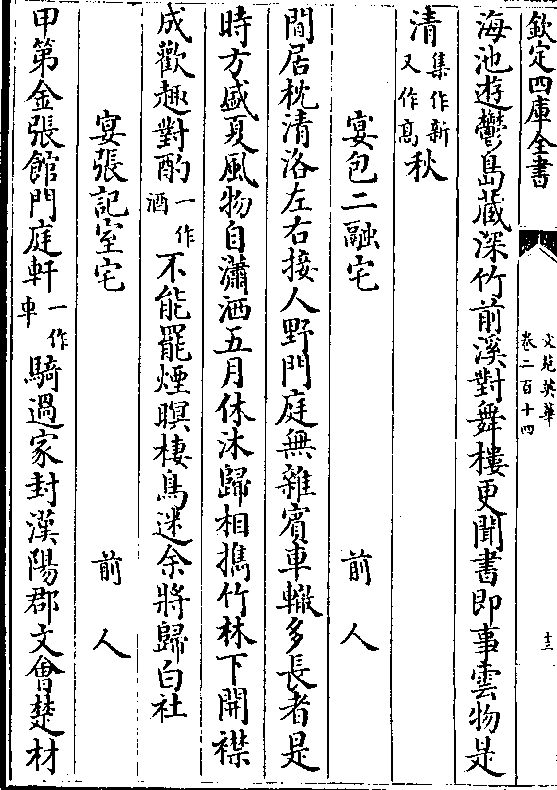 欽定四庫全書
文苑英華
卷二百十四
十三
海池遊鬱島藏深竹前溪對舞樓更聞書即事雲物是
清集作新又作高秋
宴包二融宅
前人
閒居枕清洛左右接人野門庭無雜賓車轍多長者是
時方盛夏風物自瀟洒五月休沐歸相攜竹林下開襟
成歡趣對酌一作酒不能罷煙暝棲鳥迷余將歸白社
宴張記室宅
前人
甲第金張館門庭軒一作車騎過家封漢陽郡文會楚材